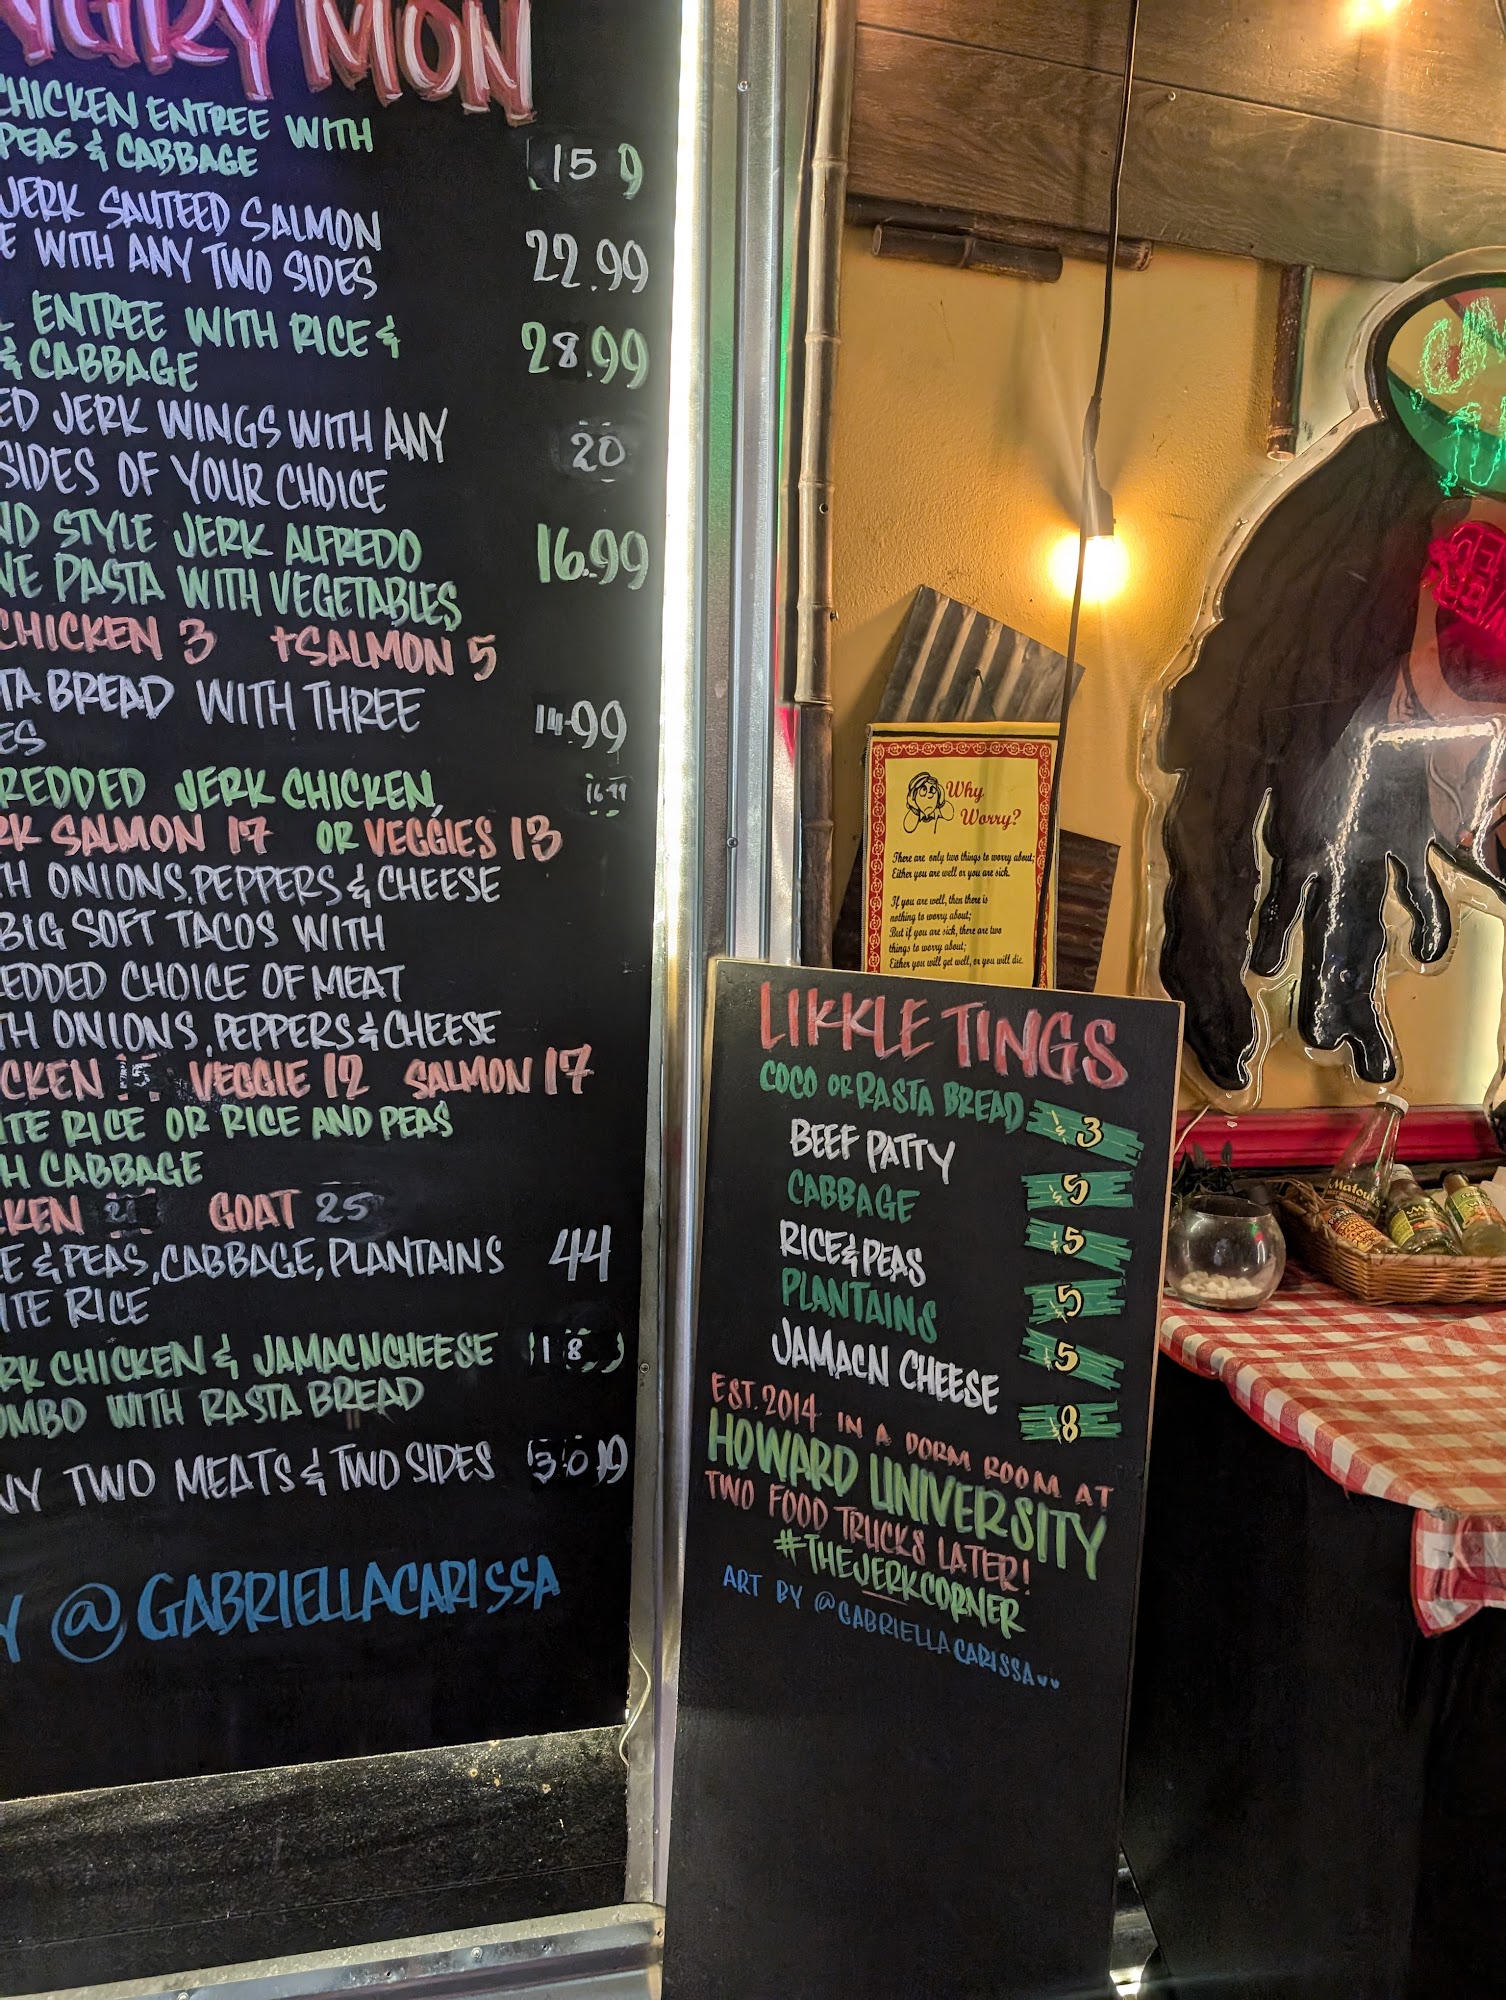 NGRY MON
CHICKEN ENTREE WITH
PEAS & CABBAGE 15 9
JERK SAUTEED SALMON
E WITH ANY TWO SIDES 22.99
L ENTREE WITH RICE &
& CABBAGE 28.99
ED JERK WINGS WITH ANY 20
SIDES OF YOUR CHOICE
ND STYLE JERK ALFREDO 16.99
NE PASTA WITH VEGETABLES
CHICKEN 3 +SALMON 5
TA BREAD WITH THREE 14.99
ES
REDDED JERK CHICKEN, 16.99
RK SALMON 17 OR VEGGIES 13
TH ONIONS, PEPPERS & CHEESE
BIG SOFT TACOS WITH
EDDED CHOICE OF MEAT
TH ONIONS, PEPPERS & CHEESE
CKEN VEGGIE 12 SALMON 17
ITE RICE OR RICE AND PEAS
H CABBAGE
KEN 21 GOAT 25
E & PEAS, CABBAGE, PLANTAINS 44
ITE RICE
RK CHICKEN & JAMACNCHEESE 18
OMBO WITH RASTA BREAD
NY TWO MEATS & TWO SIDES 30
Y @GABRIELLACARISSA
Why
Worry?
There are only two things to worry about;
Either you are well or you are sick.
If you are well, then there is
nothing to worry about;
But if you are sick, there are two
things to worry about;
Either you will get well, or you will die.
LIKKLE TINGS
COCO OR RASTA BREAD $3
BEEF PATTY $5
CABBAGE $5
RICE & PEAS $5
PLANTAINS $5
JAMACN CHEESE $8
EST. 2014 IN A DORM ROOM AT
HOWARD UNIVERSITY
TWO FOOD TRUCKS LATER!
#THEJERKCORNER
ART BY @GABRIELLACARISSA
Matouk's